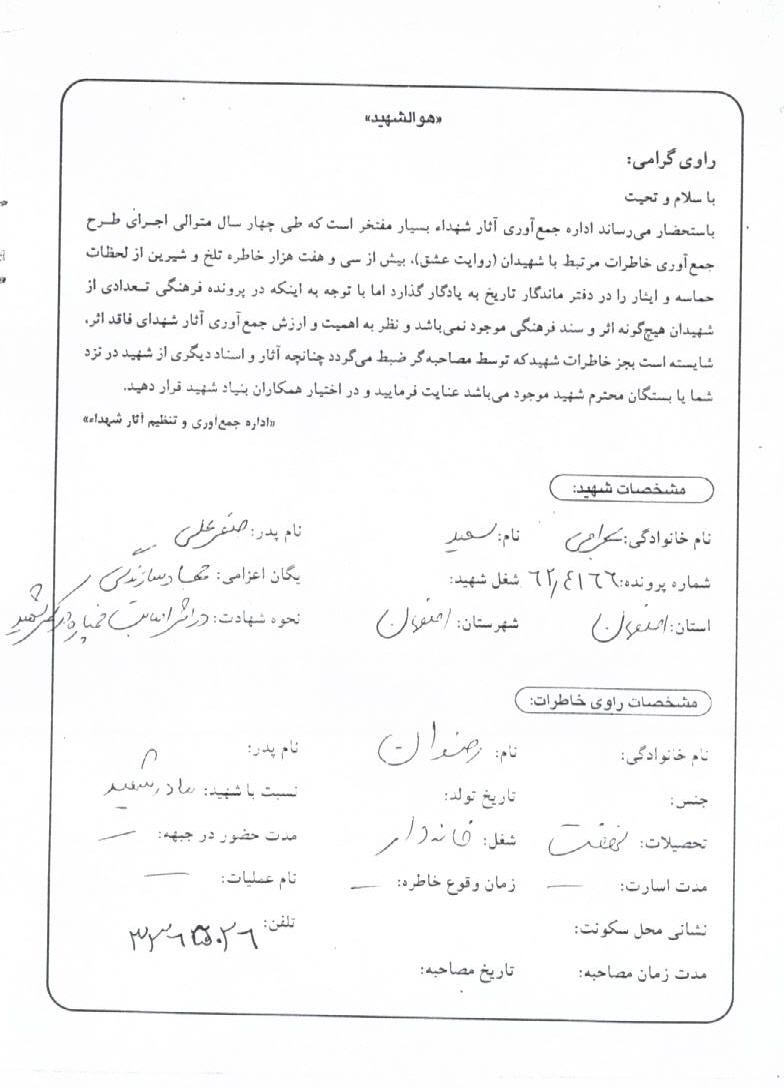 «هوالشهید»
راوی گرامی:
با سلام و تحیت
باستحضار می‌رساند اداره جمع‌آوری آثار شهداء بسیار مفتخر است که طی چهار سال متوالی اجرای طرح
جمع‌آوری خاطرات مرتبط با شهیدان (روایت عشق)، بیش از سی و هفت هزار خاطره تلخ و شیرین از لحظات
حماسه و ایثار را در دفتر ماندگار تاریخ به یادگار گذارد اما با توجه به اینکه در پرونده فرهنگی تعدادی از
شهیدان هیچ‌گونه اثر و سند فرهنگی موجود نمی‌باشد و نظر به اهمیت و ارزش جمع‌آوری آثار شهدای فاقد اثر،
شایسته است بجز خاطرات شهید که توسط مصاحبه‌گر ضبط می‌گردد چنانچه آثار و اسناد دیگری از شهید در نزد
شما یا بستگان محترم شهید موجود می‌باشد عنایت فرمایید و در اختیار همکاران بنیاد شهید قرار دهید.
«اداره جمع‌آوری و تنظیم آثار شهداء»
مشخصات شهید:
نام خانوادگی: نام: سعید نام پدر: صفرعلی
شماره پرونده: ۶۲٫۴۱۶۶ شغل شهید: یگان اعزامی: جهاد سازندگی
استان: اصفهان شهرستان: اصفهان نحوه شهادت: در اثر اصابت خمپاره
مشخصات راوی خاطرات:
نام خانوادگی: نام: رضوان نام پدر:
جنس: تاریخ تولد: نسبت با شهید: مادر شهید
تحصیلات: نهضت شغل: خانه‌دار مدت حضور در جبهه: —
مدت اسارت: — زمان وقوع خاطره: — نام عملیات: —
نشانی محل سکونت: تلفن:
مدت زمان مصاحبه: تاریخ مصاحبه: